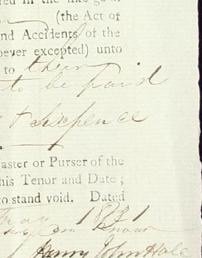 (the Act of
nd Accidents of the
ever excepted) unto
to their
to be paid
& Sixpence
aster or Purser of the
his Tenor and Date;
to stand void. Dated
1831
Henry John Hall